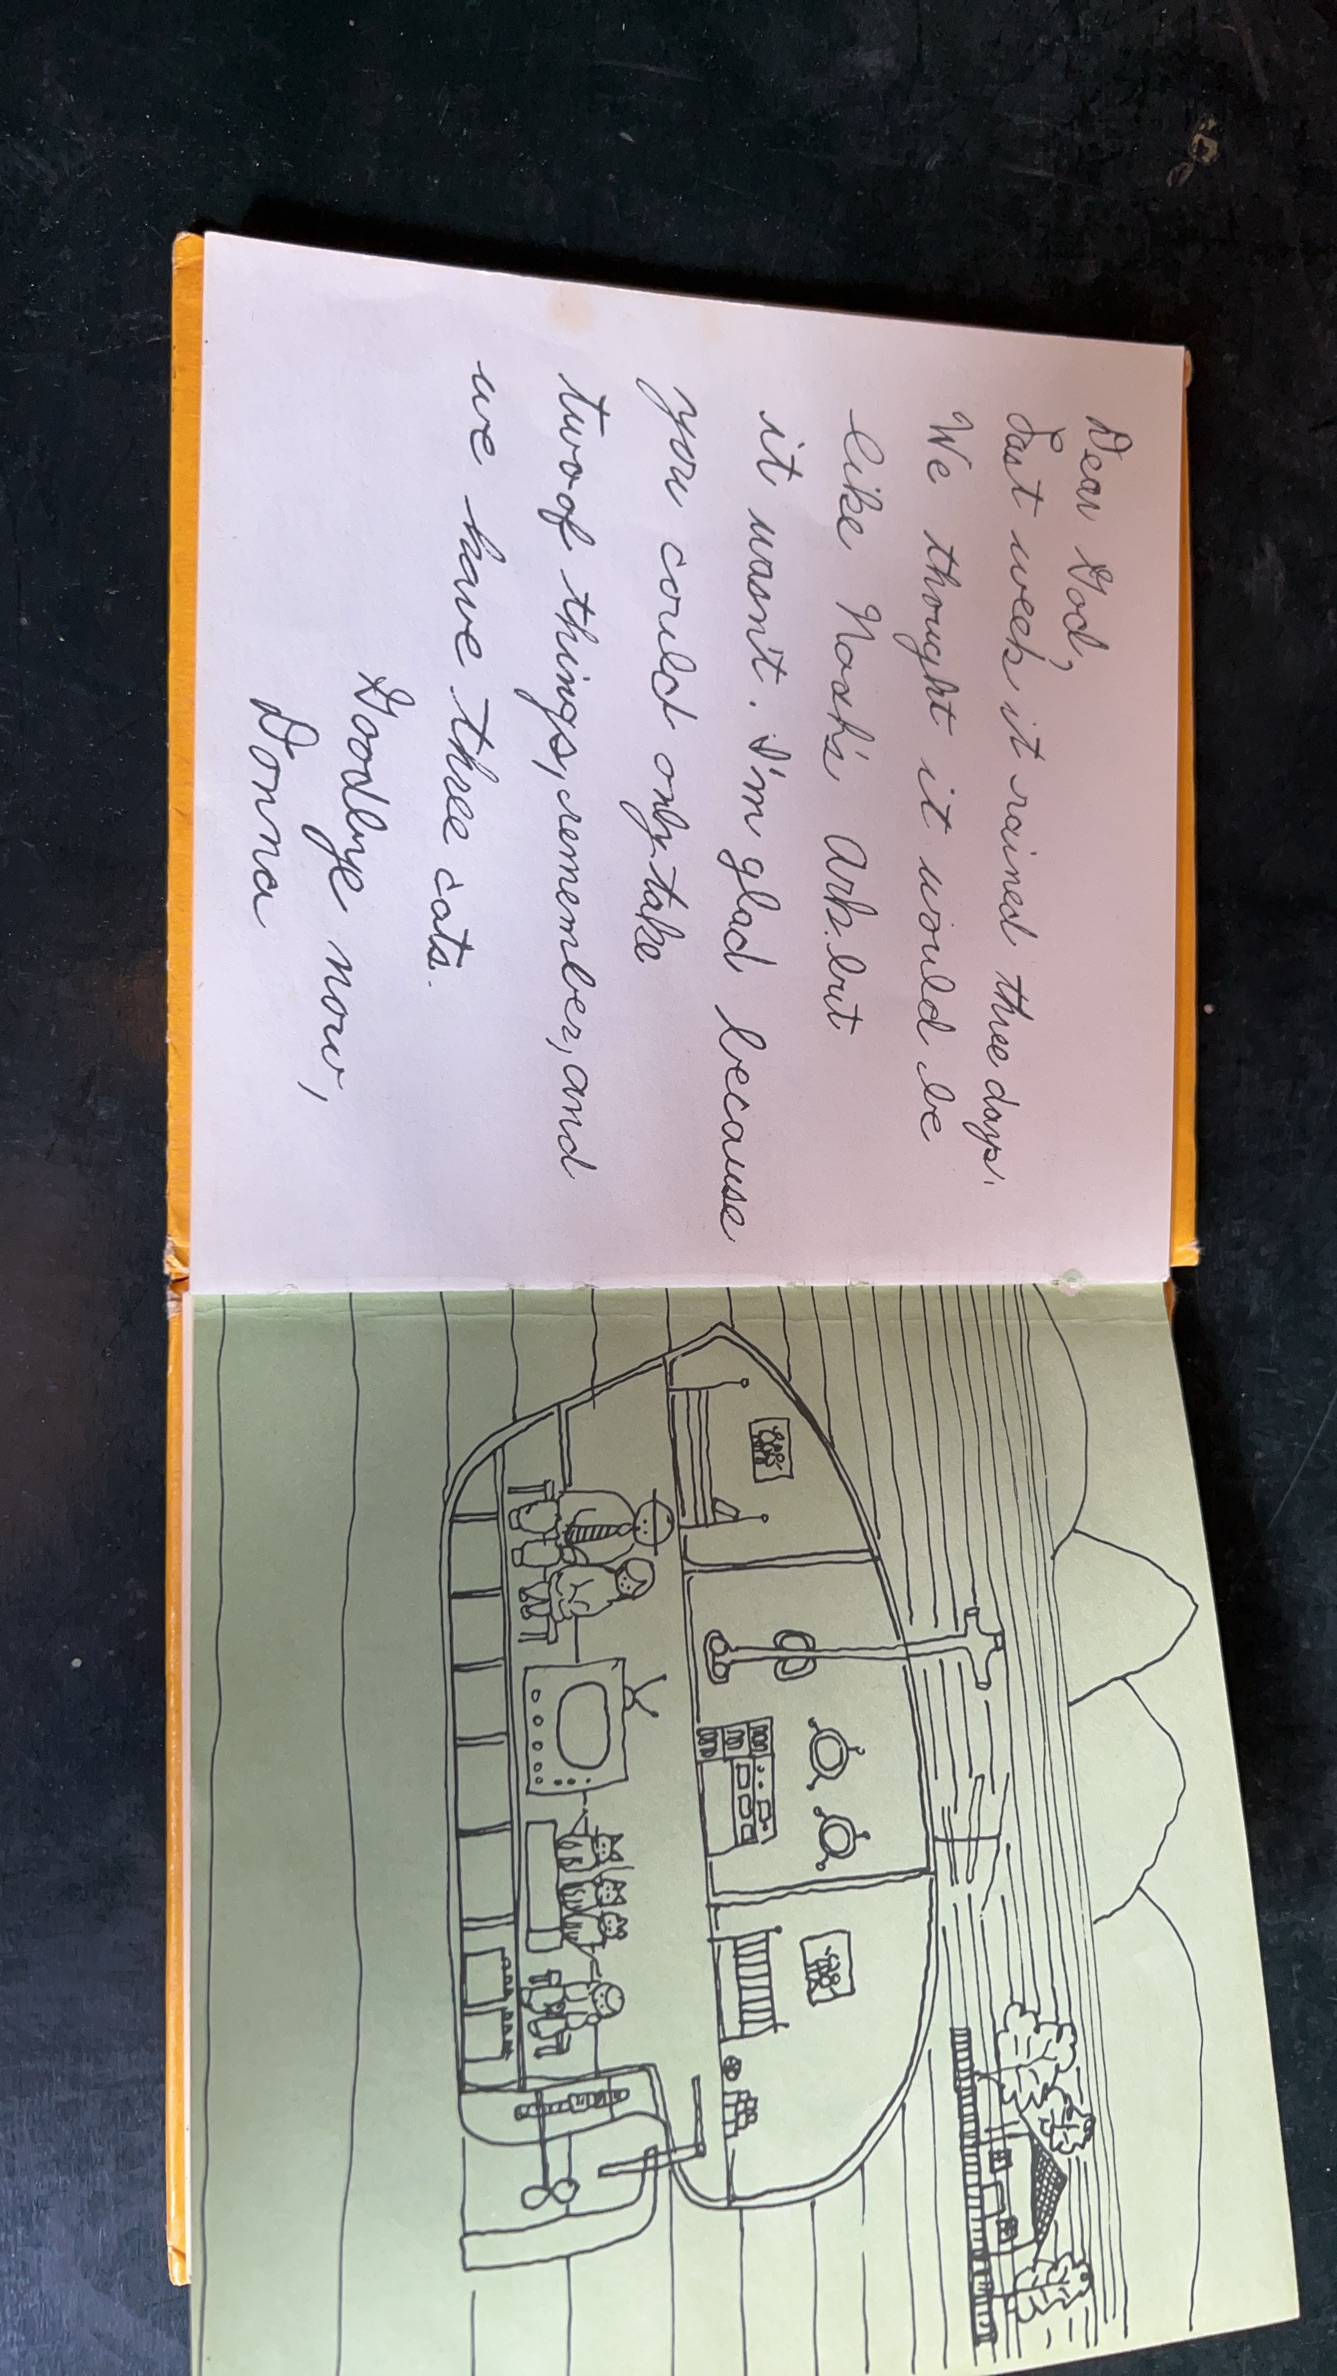 Dear God,
Last week it rained three days.
We thought it would be
like Noah's Ark. but
it wasn't. I'm glad because
you could only take
two of things, remember, and
we have three cats.
Goodbye now,
Donna